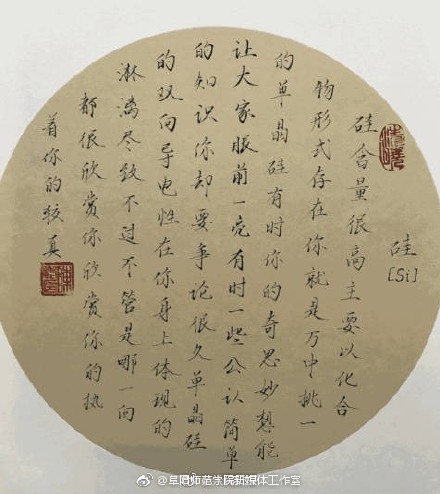 硅
[Si]
硅含量很高主要以化合
物形式存在你就是万中挑一
的单晶硅有时你的奇思妙想能
让大家眼前一亮有时一些公认简单
的知识你却要争论很久单晶硅
的双向导电性在你身上体现的
淋漓尽致不过不管是哪一向
都很欣赏你欣赏你的执
着你的较真
@阜阳师范学院新媒体工作室